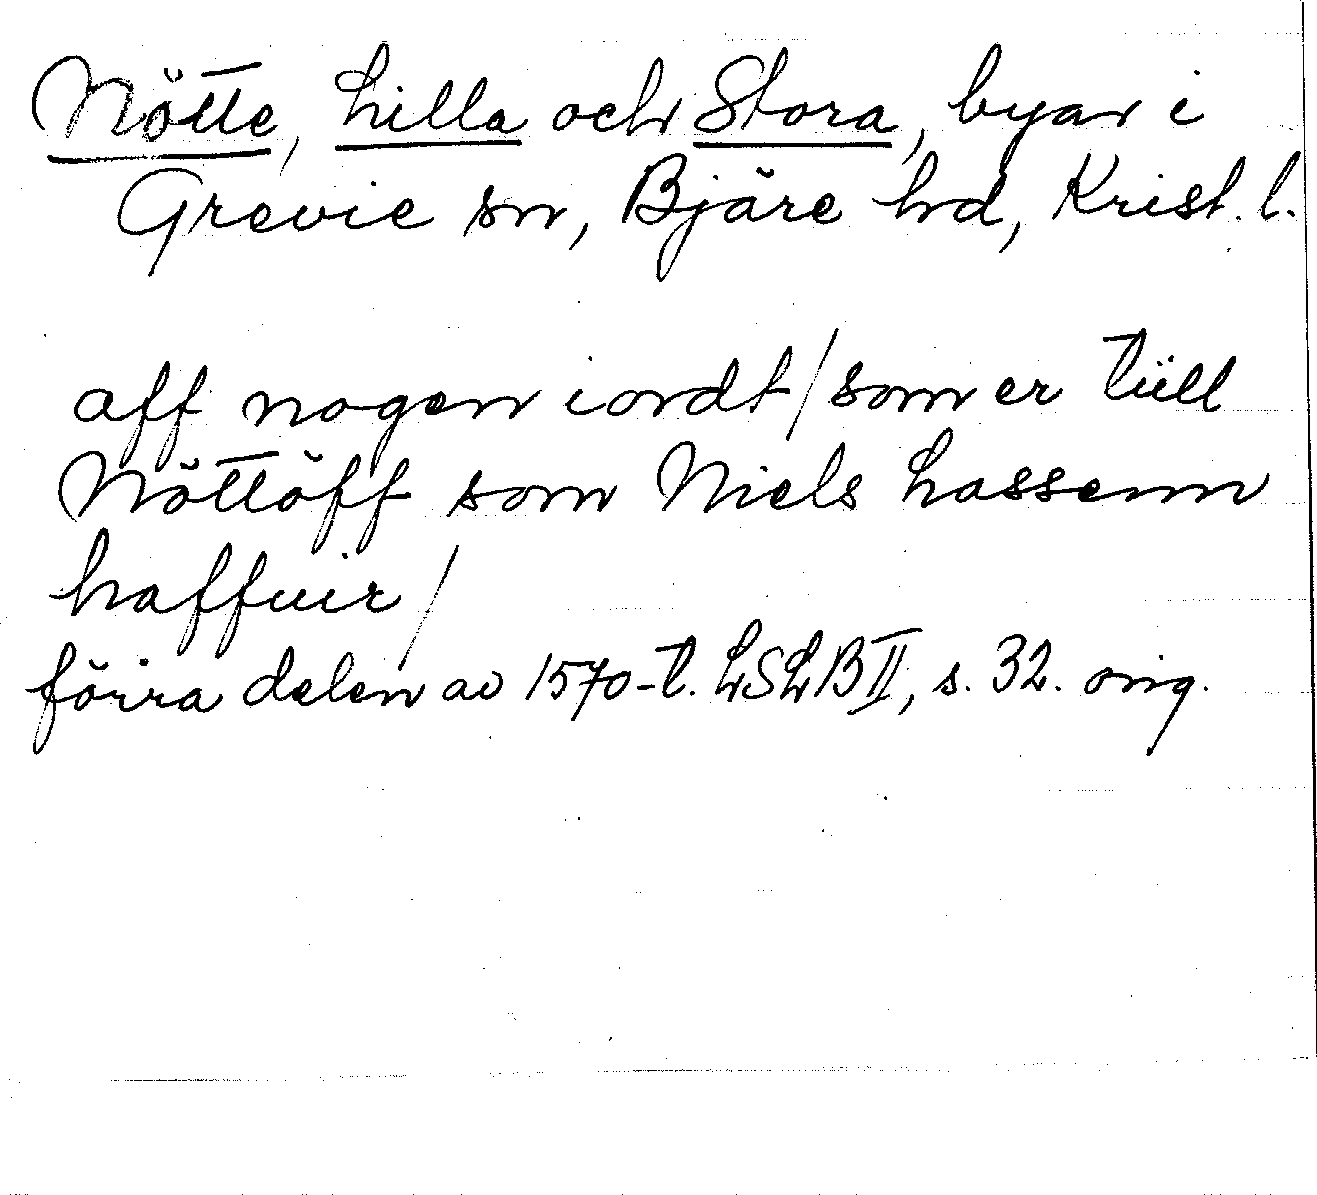 Nötte, Lilla och Stora, byar i
Grevie sn, Bjäre hd, Krist. l.
aff nogen iordt/som er tüll
Nöttöff som Niels Lassenn
haffuir/
förra delen av 1570-t. LSLB II, s. 32. orig.